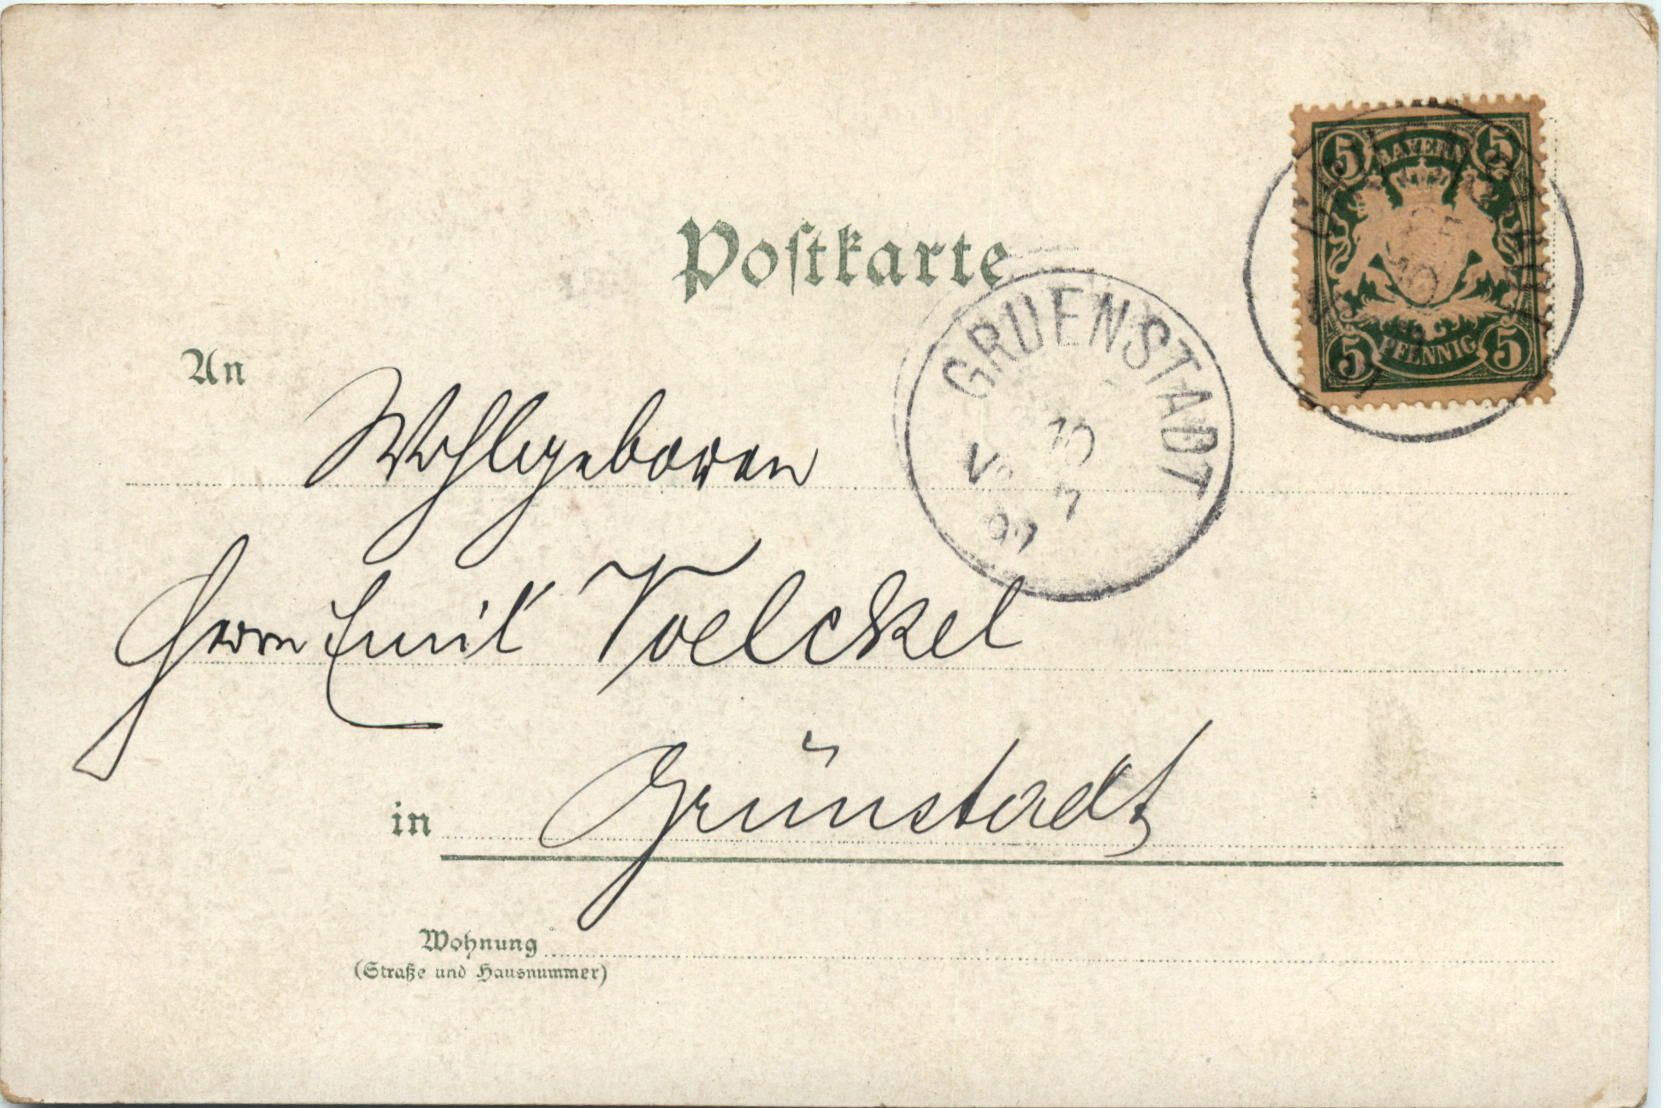 Postkarte
5 BAYERN 5
5 PFENNIG 5
GRUENSTADT
An
Wohlgeboren
Herrn Emil Voelckel
in Grünstadt
Wohnung
(Straße und Hausnummer)